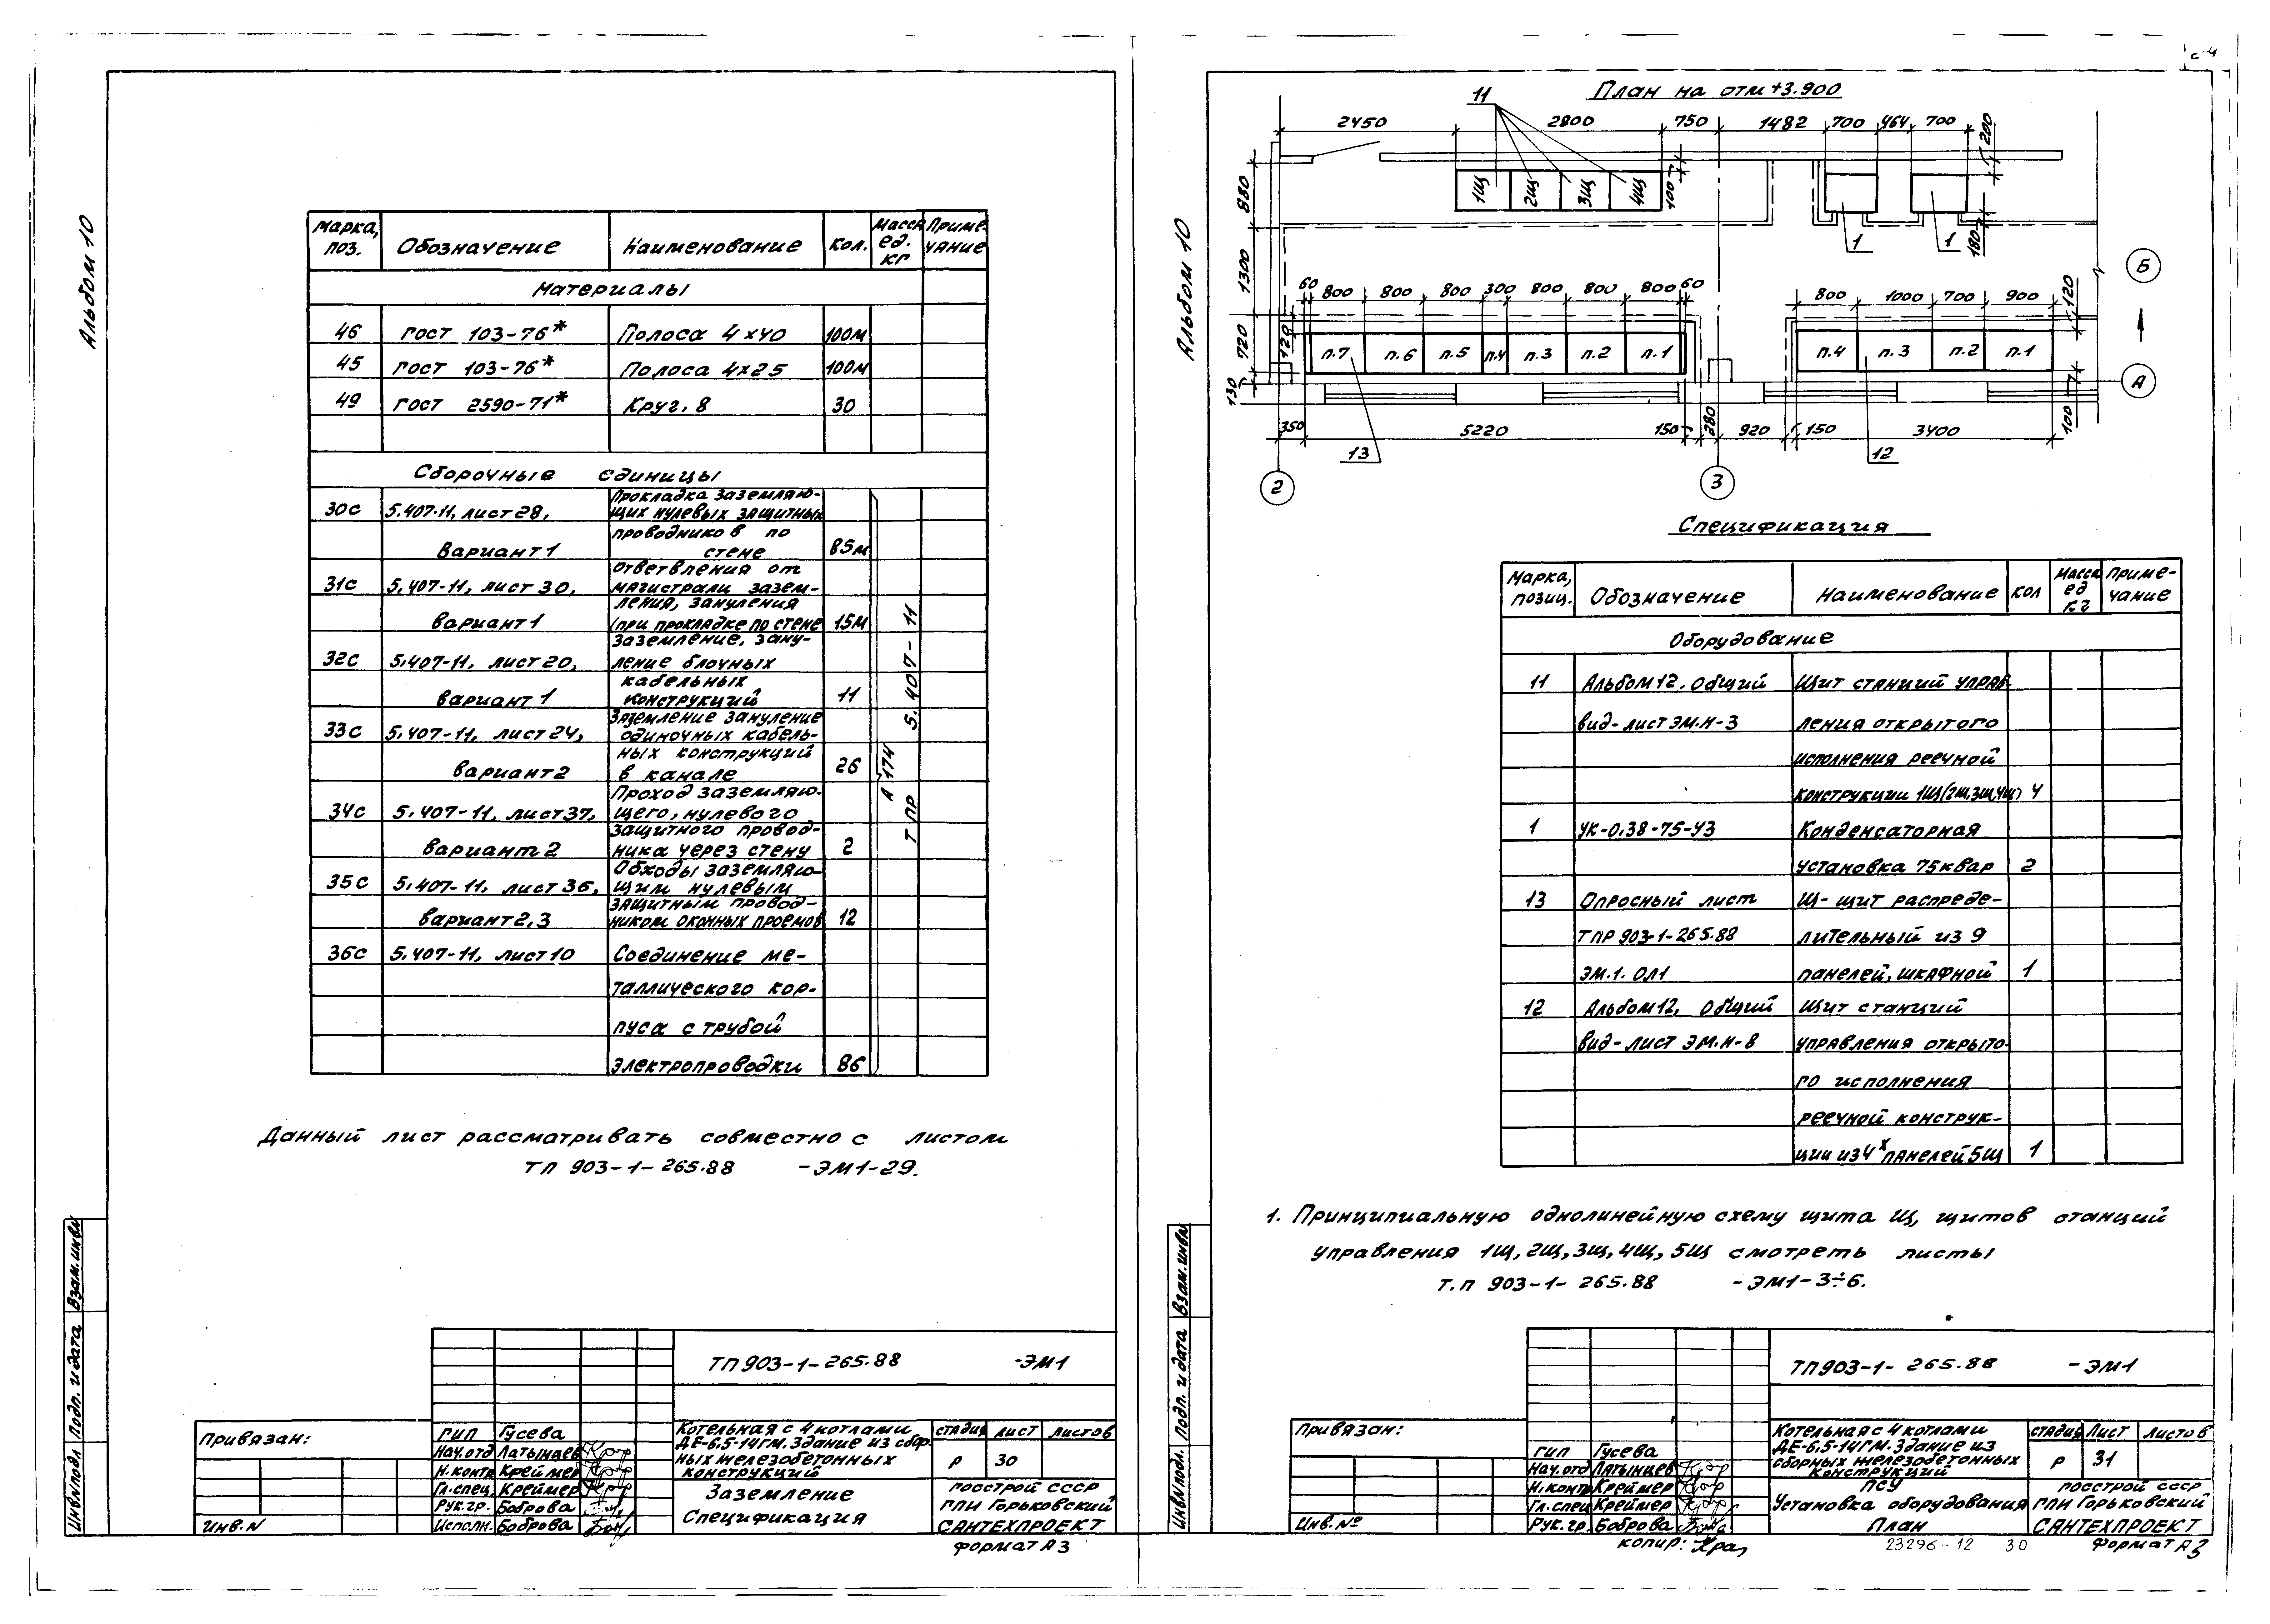 Альбом 10
Марка, поз.
Обозначение
Наименование
Кол.
Масса ед. кг
Приме-чание
Материалы
46 ГОСТ 103-76* Полоса 4×40 100м
45 ГОСТ 103-76* Полоса 4×25 100м
49 ГОСТ 2590-71* Круг. 8 30
Сборочные единицы
30с 5.407-11, лист 28, Прокладка заземляю-
щих нулевых защитных
проводников по
Вариант 1 стене 85м
31с 5.407-11, лист 30, Ответвления от
магистрали зазем-
ления, зануления
вариант 1 (при прокладке по стене 15м
32с 5.407-11, лист 20, Заземление, зану-
ление блочных
кабельных
вариант 1 конструкций 11
33с 5.407-11, лист 24, Заземление зануление
одиночных кабель-
ных конструкций
вариант 2 в канале 26
34с 5.407-11, лист 37, Проход заземляю-
щего, нулевого
защитного провод-
вариант 2 ника через стену 2
35с 5.407-11, лист 36, Обходы заземляю-
щим нулевым
защитным провод-
вариант 2,3 ником оконных проемов 12
36с 5.407-11, лист 10 Соединение ме-
таллического кор-
пуса с трубой
электропроводки 86
ТПР 5.407-11
А 174
Данный лист рассматривать совместно с листом
ТП 903-1-265.88 -ЭМ1-29.
Взам.инв№
Подп. и дата
Инв№подл
ТП903-1-265.88 -ЭМ1
Привязан:
Инв.N
ГИП Гусева
Нач.отд Латынцев
Н.контр Креймер
Гл.спец. Креймер
Рук.гр. Боброва
Исполн. Боброва
Котельная с 4 котлами
ДЕ-6,5-14ГМ. Здание из сбор-
ных железобетонных
конструкций
Заземление
Спецификация
стадия лист листов
Р 30
Госстрой СССР
ГПИ Горьковский
САНТЕХПРОЕКТ
Формат А3
с-4
Альбом 10
План на отм +3.900
11
2450 2800 750 1482 700 464 700 200
880 1300 720 130
1Щ 2Щ 3Щ 4Щ 100
1 1 180
Б
60 800 800 800 300 800 800 800 60
800 1000 700 900 120
120
п.7 п.6 п.5 п.4 п.3 п.2 п.1
п.4 п.3 п.2 п.1
А
350 5220 150 280 920 150 3400 100
13 12
2 3
Спецификация
Марка, позиц.
Обозначение
Наименование
кол
Масса ед кг
Приме-чание
Оборудование
11 Альбом 12. Общий Щит станций управ-
вид-лист ЭМ.Н-3 ления открытого
исполнения реечной
конструкции 1Щ(2Щ,3Щ,4Щ) 4
1 УК-0,38-75-У3 Конденсаторная
установка 75 квар 2
13 Опросный лист Щ-щит распреде-
ТПР 903-1-265.88 лительный из 9
ЭМ.1. ОЛ1 панелей, шкафной 1
12 Альбом 12, Общий Щит станций
вид-лист ЭМ.Н-8 управления открыто-
го исполнения
реечной конструк-
ции из 4х панелей 5Щ 1
1. Принципиальную однолинейную схему щита Щ, щитов станций
управления 1Щ, 2Щ, 3Щ, 4Щ, 5Щ смотреть листы
т.п 903-1-265.88 -ЭМ1-3÷6.
Взам.инв№
Подп. и дата
Инв№подл.
ТП903-1-265.88 -ЭМ1
Привязан:
Инв.№
ГИП Гусева
Нач.отд Латынцев
Н.контр Креймер
Гл.спец Креймер
Рук.гр. Боброва
Котельная с 4 котлами
ДЕ-6,5-14ГМ. Здание из
сборных железобетонных
конструкций
ПСУ
Установка оборудования
План
стадия Лист листов
Р 31
Госстрой СССР
ГПИ Горьковский
САНТЕХПРОЕКТ
копир:
23296-12 30
Формат А3